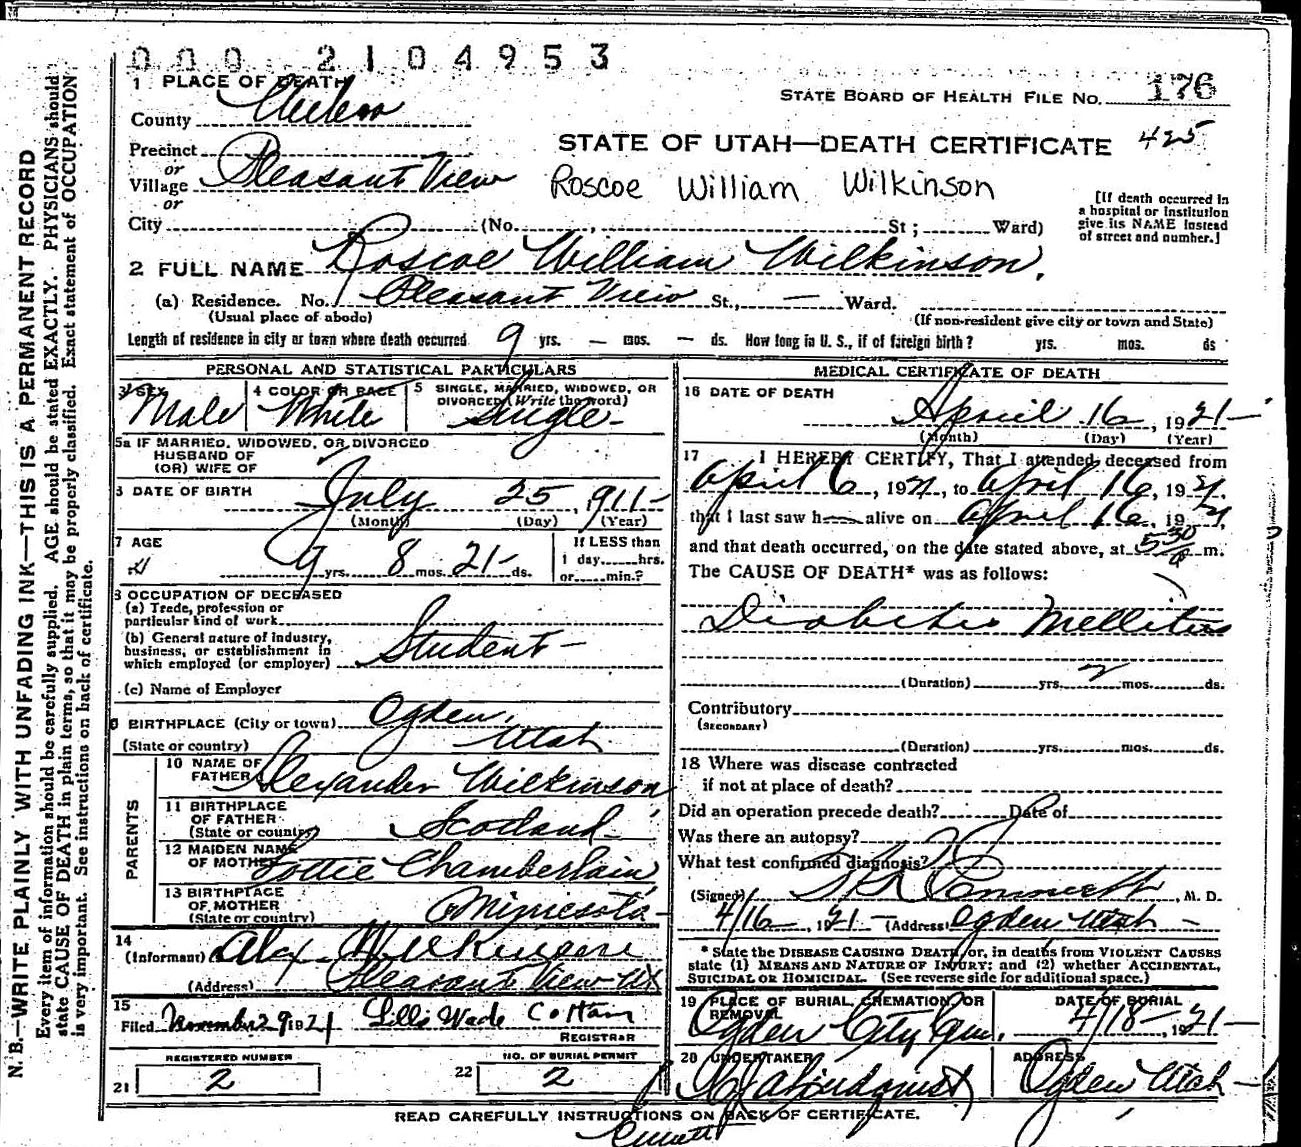 000 2104953
1 PLACE OF DEATH
STATE BOARD OF HEALTH FILE NO. 176
County Weber
STATE OF UTAH—DEATH CERTIFICATE 425
Precinct
or
Village Pleasant View
Roscoe William Wilkinson
or
[If death occurred in
a hospital or institution
give its NAME instead
of street and number.]
City (No. , St ; Ward)
2 FULL NAME Roscoe William Wilkinson.
(a) Residence. No. Pleasant View St., — Ward.
(Usual place of abode)
(If non-resident give city or town and State)
Length of residence in city or town where death occurred 9 yrs. — mos. — ds. How long in U. S., if of foreign birth? yrs. mos. ds
PERSONAL AND STATISTICAL PARTICULARS
3 SEX Male
4 COLOR OR RACE White
5 SINGLE, MARRIED, WIDOWED, OR
DIVORCED (Write the word)
Single-
5a IF MARRIED, WIDOWED, OR DIVORCED
HUSBAND OF
(OR) WIFE OF
6 DATE OF BIRTH July 25, 1911-
(Month) (Day) (Year)
7 AGE
9 yrs. 8 mos. 21- ds.
If LESS than
1 day......hrs.
or......min.?
8 OCCUPATION OF DECEASED
(a) Trade, profession or
particular kind of work
(b) General nature of industry,
business, or establishment in
which employed (or employer) Student-
(c) Name of Employer
9 BIRTHPLACE (City or town) Ogden,
(State or country) Utah
PARENTS
10 NAME OF
FATHER Alexander Wilkinson
11 BIRTHPLACE
OF FATHER
(State or country) Scotland-
12 MAIDEN NAME
OF MOTHER Lottie Chamberlain
13 BIRTHPLACE
OF MOTHER
(State or country) Minnesota-
14
(Informant) Alex Wilkinson
(Address) Pleasant View Ut
15
Filed November 29, 1921 Lillis Wade Cottam
REGISTRAR
REGISTERED NUMBER
21 2
NO. OF BURIAL PERMIT
22 2
MEDICAL CERTIFICATE OF DEATH
16 DATE OF DEATH
April 16, 1921-
(Month) (Day) (Year)
17 I HEREBY CERTIFY, That I attended deceased from
April 6, 1921, to April 16, 1921.
that I last saw h— alive on April 16, 1921,
and that death occurred, on the date stated above, at 5 30 a m.
The CAUSE OF DEATH* was as follows:
Diabetis Mellitus
(Duration) yrs. 2 mos. ds.
Contributory
(SECONDARY)
(Duration) yrs. mos. ds.
18 Where was disease contracted
if not at place of death?
Did an operation precede death? Date of
Was there an autopsy?
What test confirmed diagnosis?
(Signed) M. D.
4/16-, 1921- (Address) Ogden Utah-
* State the DISEASE CAUSING DEATH, or, in deaths from VIOLENT CAUSES
state (1) MEANS AND NATURE OF INJURY; and (2) whether ACCIDENTAL,
SUICIDAL OR HOMICIDAL. (See reverse side for additional space.)
19 PLACE OF BURIAL, CREMATION, OR
REMOVAL
Ogden City Cem.
DATE OF BURIAL
4/18-, 1921-
20 UNDERTAKER
ADDRESS
Ogden Utah-
READ CAREFULLY INSTRUCTIONS ON BACK OF CERTIFICATE.
N. B.—WRITE PLAINLY WITH UNFADING INK—THIS IS A PERMANENT RECORD
Every item of information should be carefully supplied. AGE should be stated EXACTLY. PHYSICIANS should
state CAUSE OF DEATH in plain terms, so that it may be properly classified. Exact statement of OCCUPATION
is very important. See instructions on back of certificate.